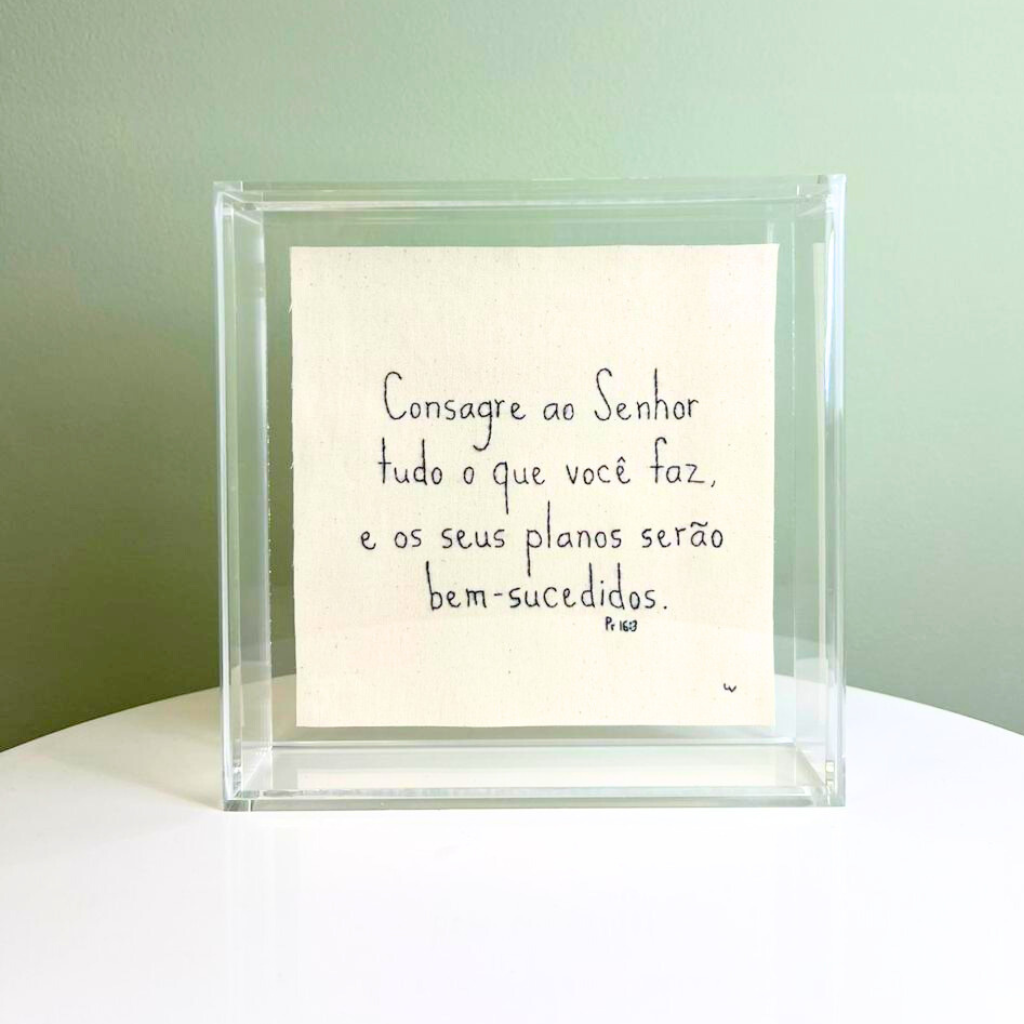 Consagre ao Senhor
tudo o que você faz,
e os seus planos serão
bem-sucedidos.
Pr 16:3
w